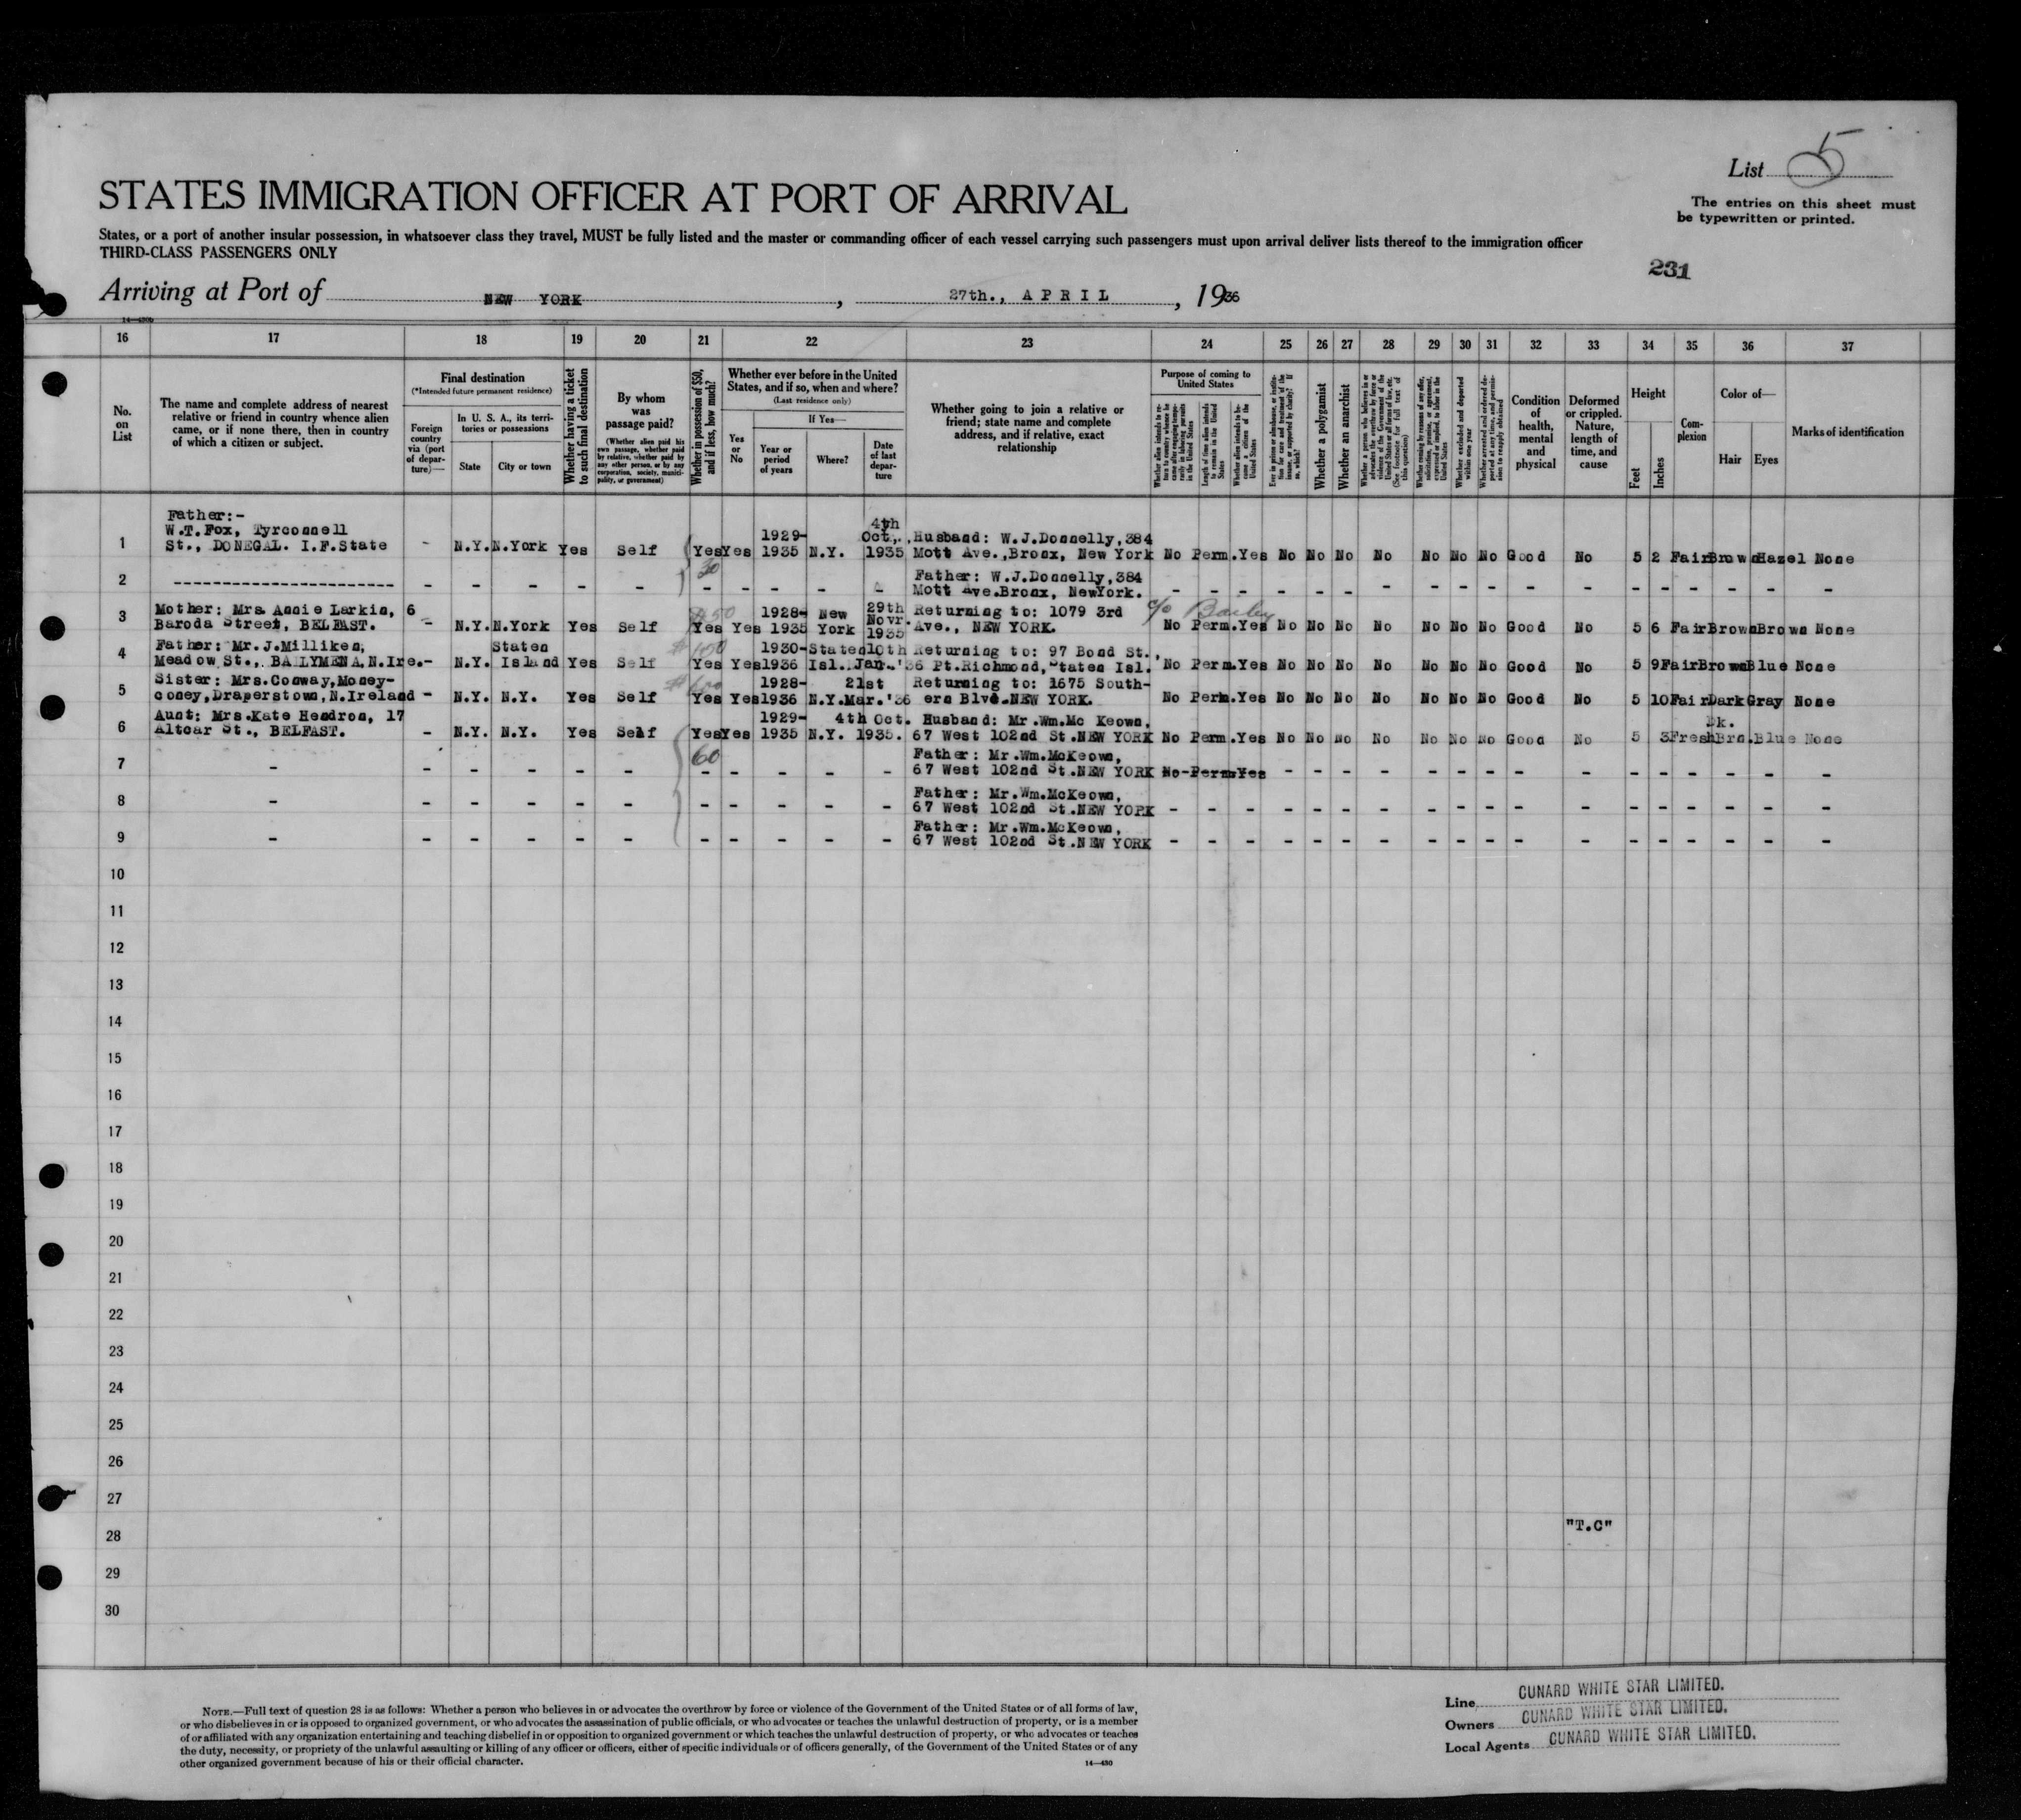 List 5
The entries on this sheet must
be typewritten or printed.
STATES IMMIGRATION OFFICER AT PORT OF ARRIVAL
States, or a port of another insular possession, in whatsoever class they travel, MUST be fully listed and the master or commanding officer of each vessel carrying such passengers must upon arrival deliver lists thereof to the immigration officer
THIRD-CLASS PASSENGERS ONLY
231
Arriving at Port of NEW YORK, 27th., APRIL, 1936
14—430b
16 17 18 19 20 21 22 23 24 25 26 27 28 29 30 31 32 33 34 35 36 37
No. on List
The name and complete address of nearest
relative or friend in country whence alien
came, or if none there, then in country
of which a citizen or subject.
Final destination
(*Intended future permanent residence)
Foreign country via (port of departure)—
In U. S. A., its territories or possessions
State
City or town
Whether having a ticket to such final destination
By whom was passage paid?
(Whether alien paid his own passage, whether paid by relative, whether paid by any other person, or by any corporation, society, municipality, or government)
Whether in possession of $50, and if less, how much?
Whether ever before in the United
States, and if so, when and where?
(Last residence only)
Yes or No
If Yes—
Year or period of years
Where?
Date of last departure
Whether going to join a relative or
friend; state name and complete
address, and if relative, exact
relationship
Purpose of coming to United States
Length of time alien intends to remain in the United States
Whether alien intends to become a citizen of the United States
Whether a polygamist
Whether an anarchist
Condition of health, mental and physical
Deformed or crippled. Nature, length of time, and cause
Height
Feet
Inches
Complexion
Color of—
Hair
Eyes
Marks of identification
1 Father:- W.T.Fox, Tyrconnell St., DONEGAL. I.F.State - N.Y. N.York Yes Self Yes Yes 1929-1935 N.Y. 4th Oct., 1935 Husband: W.J.Donnelly,384 Mott Ave.,Bronx, New York No Perm. Yes No No No No No No No Good No 5 2 Fair Brown Hazel None
30
2 ---------------------- - - - - - - - - - - Father: W.J.Donnelly,384 Mott Ave.Bronx, NewYork. - - - - - - - - - - - - - - - - - -
3 Mother: Mrs. Annie Larkin, 6 Baroda Street, BELFAST. - N.Y. N.York Yes Self $50 Yes Yes 1928-1935 New York 29th Novr. 1935 Returning to: 1079 3rd Ave., NEW YORK. c/o Bailey No Perm. Yes No No No No No No No Good No 5 6 Fair Brown Brown None
4 Father: Mr. J.Milliken, Meadow St., BALLYMENA,N.Ire. - N.Y. Staten Island Yes Self Yes Yes 1930-1936 Staten Isl. 10th Jan. '36 Returning to: 97 Bond St., Pt.Richmond, Staten Isl. No Perm. Yes No No No No No No No Good No 5 9 Fair Brown Blue None
5 Sister: Mrs.Conway,Moneyconey,Draperstown,N.Ireland - N.Y. N.Y. Yes Self Yes Yes 1928-1936 N.Y. 21st Mar.'36 Returning to: 1675 Southern Blvd.NEW YORK. No Perm. Yes No No No No No No No Good No 5 10 Fair Dark Gray None
6 Aunt: Mrs.Kate Hendron, 17 Altcar St., BELFAST. - N.Y. N.Y. Yes Self Yes Yes 1929-1935 N.Y. 4th Oct. 1935. Husband: Mr.Wm.Mc Keown, 67 West 102nd St.NEW YORK No Perm. Yes No No No No No No No Good No 5 3 Fresh Dk. Brn. Blue None
60
7 - - - - - - - - - - - Father: Mr.Wm.McKeown, 67 West 102nd St.NEW YORK No-Perm.Yes - - - - - - - - - - - - - - -
8 - - - - - - - - - - - Father: Mr.Wm.McKeown, 67 West 102nd St.NEW YORK - - - - - - - - - - - - - - - - - -
9 - - - - - - - - - - - Father: Mr.Wm.McKeown, 67 West 102nd St.NEW YORK - - - - - - - - - - - - - - - - - -
10
11
12
13
14
15
16
17
18
19
20
21
22
23
24
25
26
27
28 "T.C"
29
30
NOTE.—Full text of question 28 is as follows: Whether a person who believes in or advocates the overthrow by force or violence of the Government of the United States or of all forms of law,
or who disbelieves in or is opposed to organized government, or who advocates the assassination of public officials, or who advocates or teaches the unlawful destruction of property, or is a member
of or affiliated with any organization entertaining and teaching disbelief in or opposition to organized government or which teaches the unlawful destruction of property, or who advocates or teaches
the duty, necessity, or propriety of the unlawful assaulting or killing of any officer or officers, either of specific individuals or of officers generally, of the Government of the United States or of any
other organized government because of his or their official character.
14—430
Line CUNARD WHITE STAR LIMITED.
Owners CUNARD WHITE STAR LIMITED.
Local Agents CUNARD WHITE STAR LIMITED.